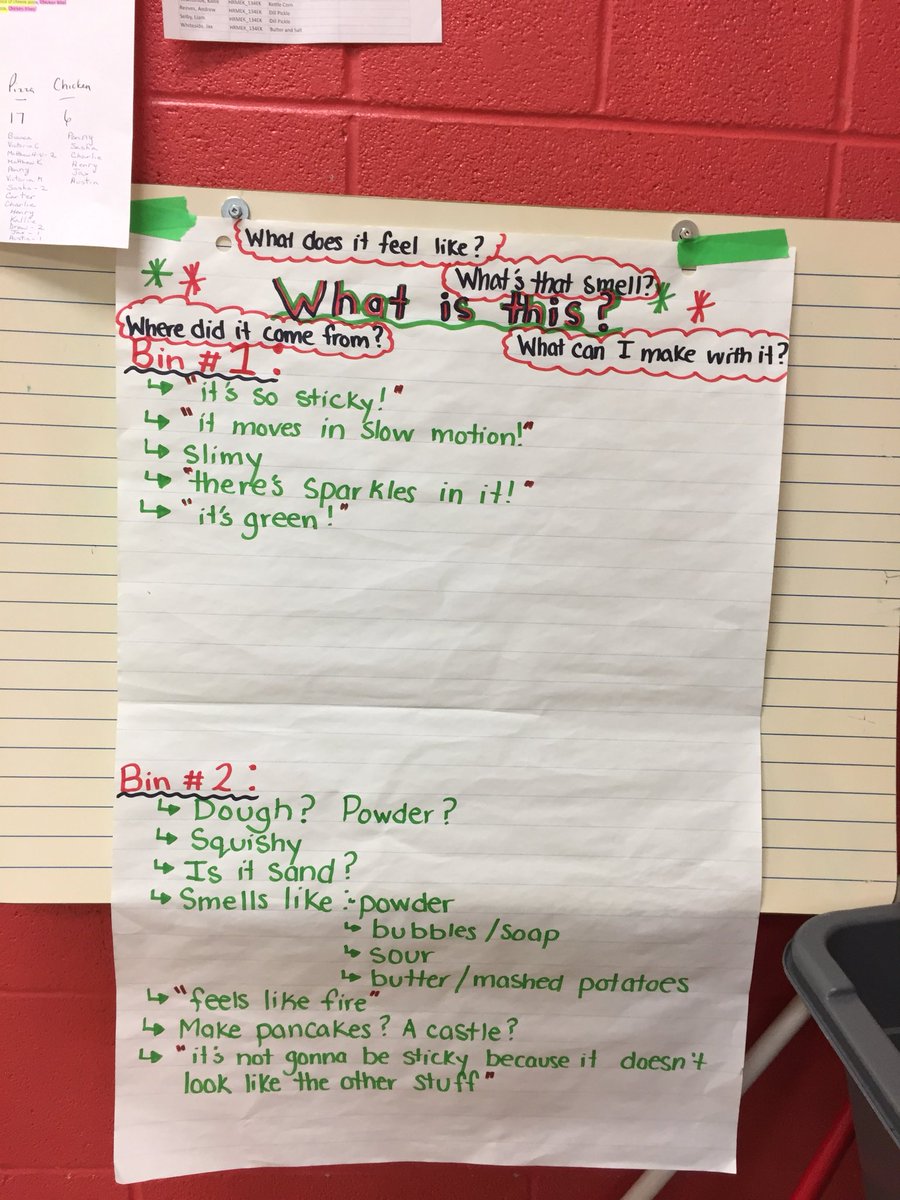 Kettle Corn
Reeves, Andrew HRMEK_134EK Dill Pickle
Selby, Liam HRMEK_134EK Dill Pickle
Whiteside, Jax HRMEK_134EK Butter and Salt
Pizza Chicken
17 6
Bianca Penny
Victoria C Sasha
Charlie
Matthew K Henry
Penny Jax
Victoria M Austin
Sasha - 2
Carter
Charlie
Henry
Kallie
Drew - 2
What does it feel like?
What's that smell?
What is this?
Where did it come from?
What can I make with it?
Bin #1:
↳ "it's so sticky!"
↳ "it moves in slow motion!"
↳ Slimy
↳ "there's sparkles in it!"
↳ "it's green!"
Bin #2:
↳ Dough? Powder?
↳ Squishy
↳ Is it sand?
↳ Smells like :- powder
↳ bubbles/soap
↳ sour
↳ butter/mashed potatoes
↳ "feels like fire"
↳ Make pancakes? A castle?
↳ "it's not gonna be sticky because it doesn't
look like the other stuff"